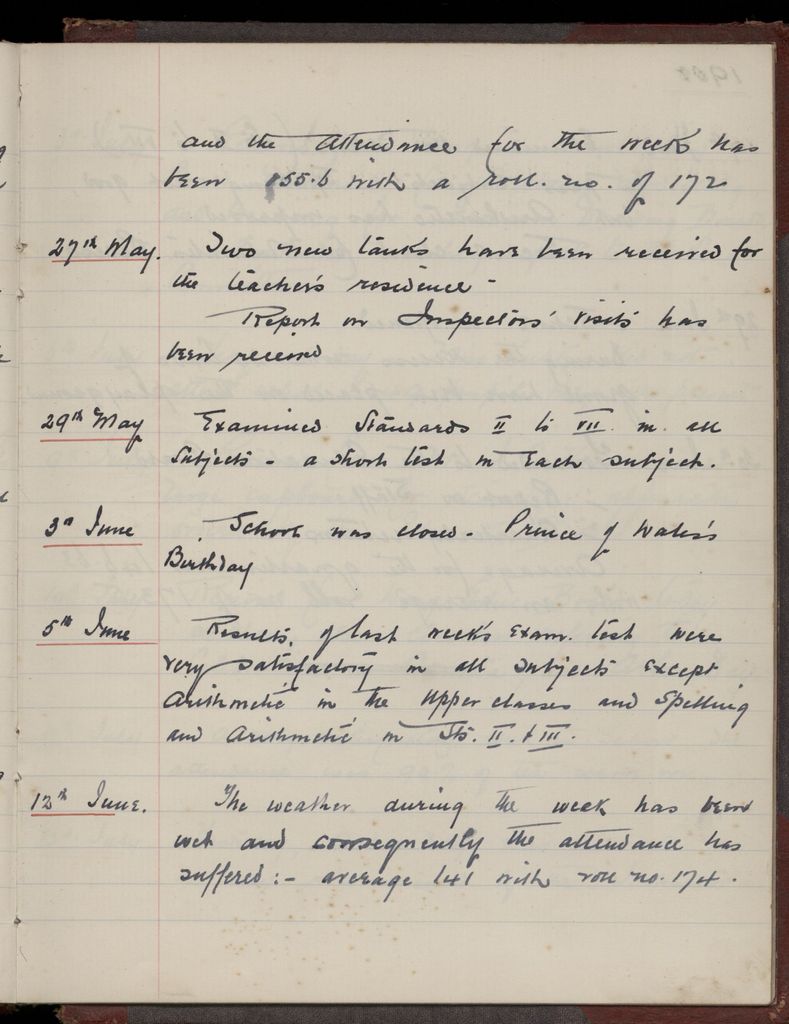 and the attendance for the week has
been 155.6 with a roll. no. of 172
27th May. Two new tanks have been received for
the teacher's residence -
Report on Inspectors' visits has
been received
29th May Examined Standards II to VII. in all
subjects - a short test in each subject.
3rd June School was closed - Prince of Wales's
Birthday
5th June Results, of last week's exam. test were
very satisfactory in all subjects except
Arithmetic in the upper classes and Spelling
and Arithmetic in Sts. II. & III.
12th June. The weather during the week has been
wet and consequently the attendance has
suffered :- average 141 with roll no. 174.